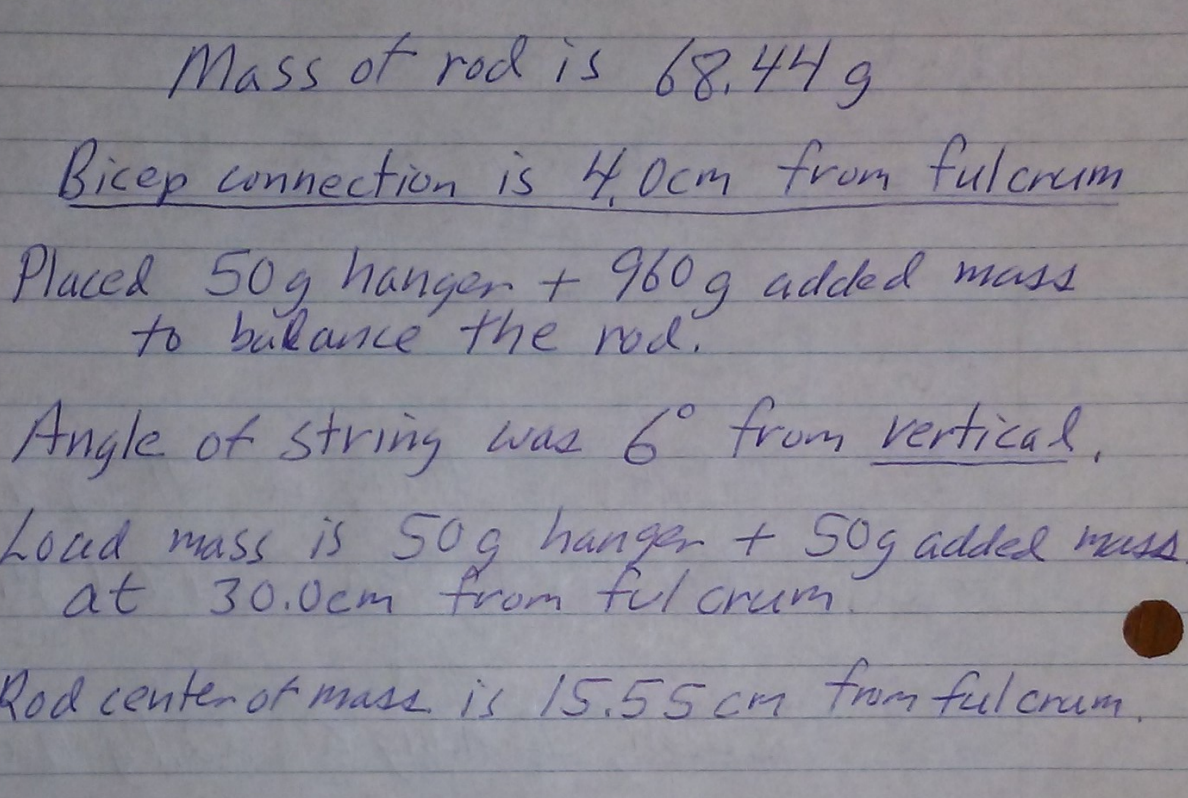 Mass of rod is 68.44 g
Bicep connection is 4.0cm from fulcrum
Placed 50g hanger + 960g added mass
to balance the rod.
Angle of string was 6° from vertical.
Load mass is 50g hanger + 50g added mass
at 30.0cm from fulcrum.
Rod center of mass is 15.55cm from fulcrum.